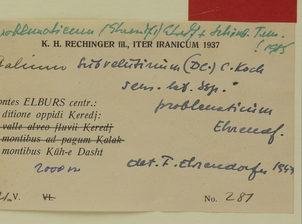 problematicum (Ehrendf.) Ehrdf. & Schönb.-Tem.
K. H. RECHINGER fil., ITER IRANICUM 1937
Galium subvelutinum (DC.) C. Koch
sens. lat. ssp.
ontes ELBURS centr.: problematicum
ditione oppidi Keredj: Ehrendf.
valle alveo fluvii Keredj
montibus ad pagum Kalak
montibus Kūh-e Dasht
2000 m det. F. Ehrendorfer
V. VI. No. 281